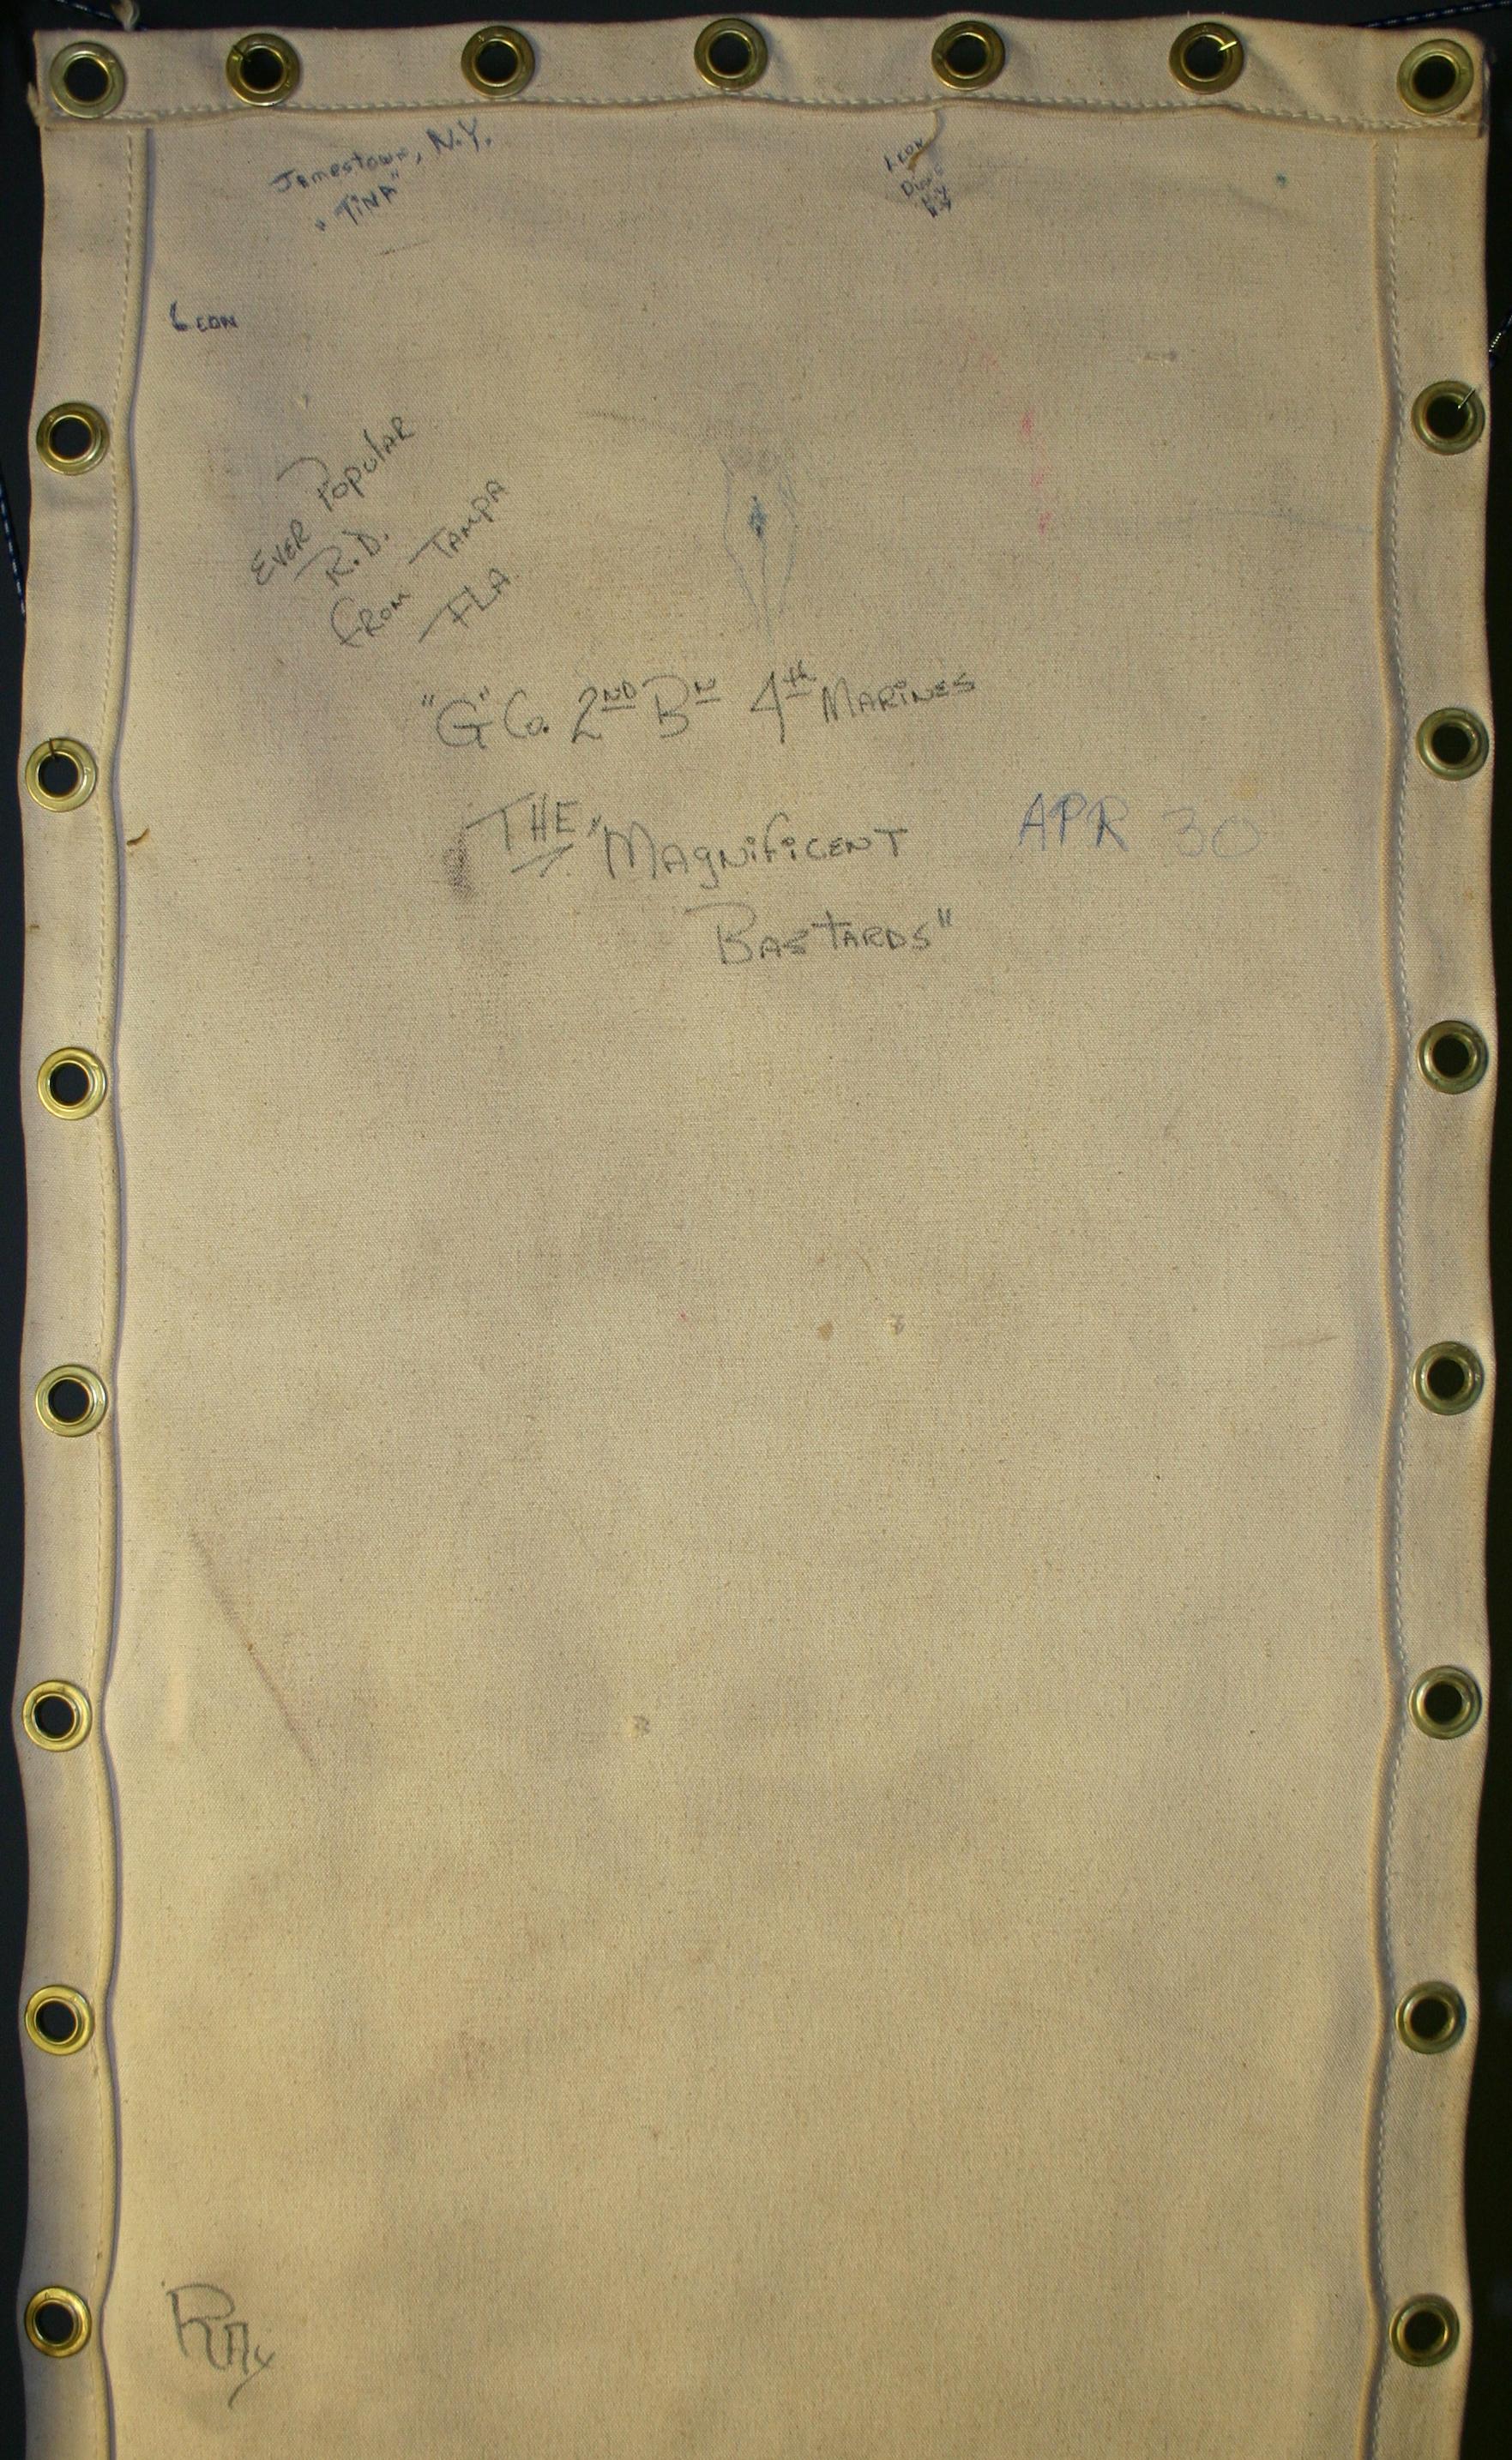 Jamestown, N.Y.
"TINA"
LEON
LEON
EVER POPULAR
R.D.
FROM TAMPA
FLA
"G" Co. 2ND BN 4th MARINES
THE "MAGNIFICENT
BASTARDS"
APR 30
RAY